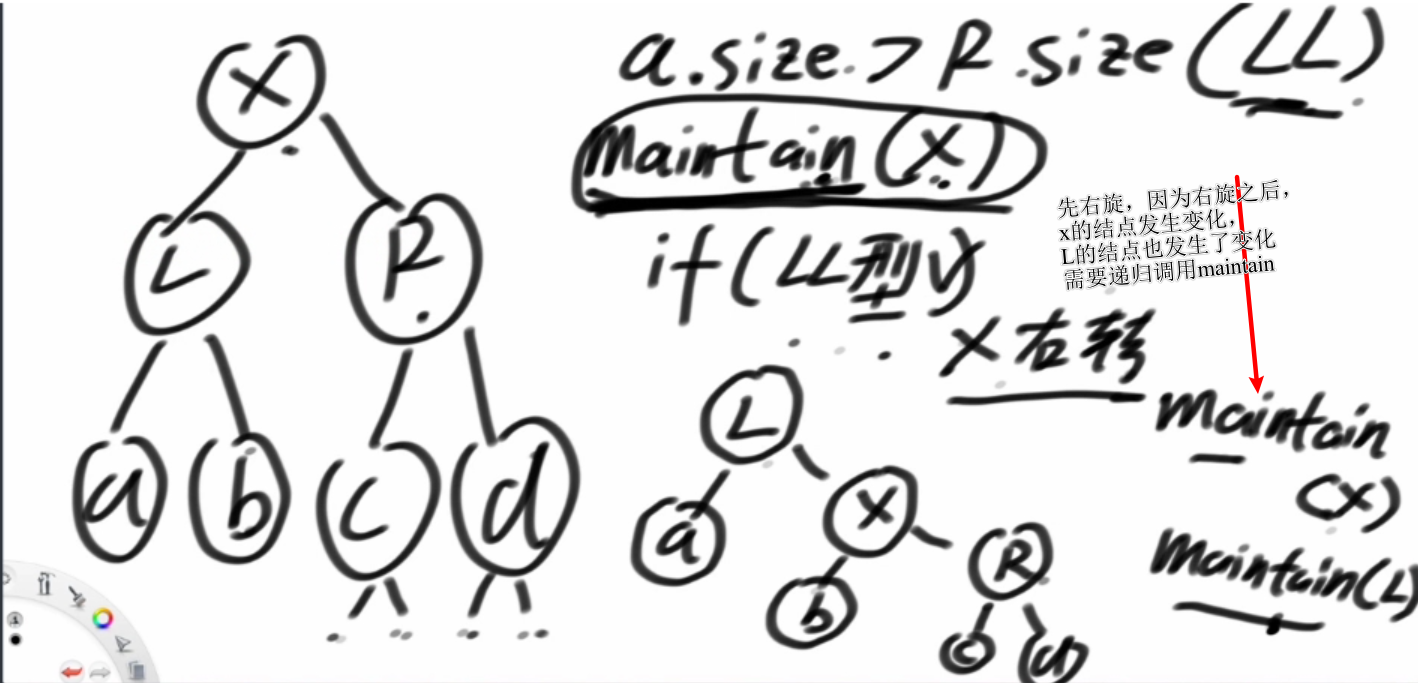 X
L
R
a
b
c
d
a.size > R.size (LL)
maintain(X)
if(LL型√)
X右转
先右旋，因为右旋之后，
x的结点发生变化，
L的结点也发生了变化
需要递归调用maintain
maintain
(X)
maintain(L)
L
a
X
b
R
c
d